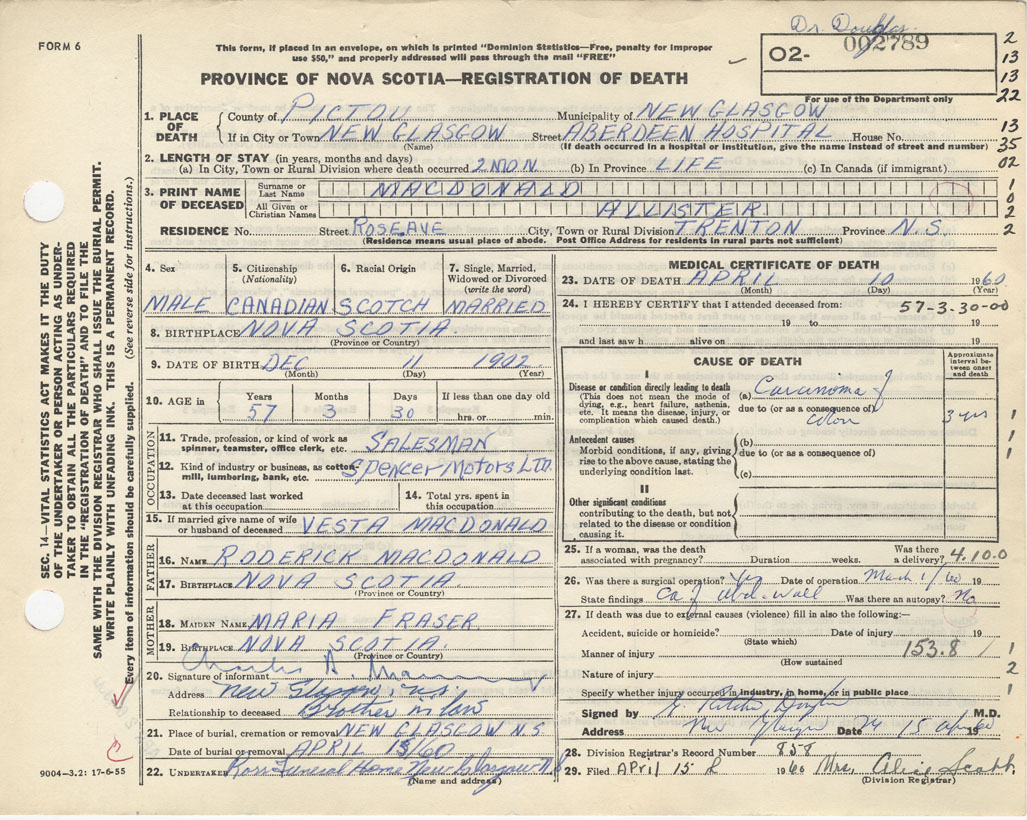 Dr. Douglas
FORM 6
This form, if placed in an envelope, on which is printed "Dominion Statistics—Free, penalty for improper
use $50," and properly addressed will pass through the mail "FREE"
PROVINCE OF NOVA SCOTIA—REGISTRATION OF DEATH
O2- 002789
For use of the Department only
2
13
13
22
13
35
02
1
0
2
2
1. PLACE OF DEATH
County of PICTOU Municipality of NEW GLASGOW
If in City or Town NEW GLASGOW Street ABERDEEN HOSPITAL House No.
(Name) (If death occurred in a hospital or institution, give the name instead of street and number)
2. LENGTH OF STAY (in years, months and days)
(a) In City, Town or Rural Division where death occurred 2 MON. (b) In Province LIFE (c) In Canada (if immigrant)
3. PRINT NAME OF DECEASED
Surname or Last Name MACDONALD
All Given or Christian Names ALLISTER
RESIDENCE No. Street ROSE AVE City, Town or Rural Division TRENTON Province N.S.
(Residence means usual place of abode. Post Office Address for residents in rural parts not sufficient)
4. Sex
MALE
5. Citizenship (Nationality)
CANADIAN
6. Racial Origin
SCOTCH
7. Single, Married, Widowed or Divorced (write the word)
MARRIED
8. BIRTHPLACE NOVA SCOTIA.
(Province or Country)
9. DATE OF BIRTH DEC 11 1902
(Month) (Day) (Year)
10. AGE in Years Months Days If less than one day old
57 3 30 hrs. or min.
OCCUPATION
11. Trade, profession, or kind of work as SALESMAN
spinner, teamster, office clerk, etc.
12. Kind of industry or business, as cotton- Spencer Motors LTD.
mill, lumbering, bank, etc.
13. Date deceased last worked at this occupation
14. Total yrs. spent in this occupation
15. If married give name of wife or husband of deceased VESTA MACDONALD
FATHER
16. NAME RODERICK MACDONALD
17. BIRTHPLACE NOVA SCOTIA
(Province or Country)
MOTHER
18. MAIDEN NAME MARIA FRASER
19. BIRTHPLACE NOVA SCOTIA.
(Province or Country)
20. Signature of informant Charles
Address New Glasgow, N.S.
Relationship to deceased Brother in law
21. Place of burial, cremation or removal NEW GLASGOW N.S.
Date of burial or removal APRIL 13/60
22. UNDERTAKER Ross Funeral Home New Glasgow N.S
(Name and address)
MEDICAL CERTIFICATE OF DEATH
23. DATE OF DEATH APRIL 10 1960
(Month) (Day) (Year)
24. I HEREBY CERTIFY that I attended deceased from: 57-3-30-00
19 to 19
and last saw h alive on 19
CAUSE OF DEATH
Approximate interval between onset and death
I
Disease or condition directly leading to death (a) Carcinoma of
(This does not mean the mode of dying, e.g., heart failure, asthenia, etc. It means the disease, injury, or complication which caused death.)
due to (or as a consequence of) colon 3 yrs 1
Antecedent causes (b) 1
Morbid conditions, if any, giving rise to the above cause, stating the underlying condition last.
due to (or as a consequence of) 1
(c)
II
Other significant conditions
contributing to the death, but not related to the disease or condition causing it.
25. If a woman, was the death associated with pregnancy? Duration weeks. Was there a delivery? 4.10.0
26. Was there a surgical operation? Yes Date of operation March 1/60 19
State findings Ca of abd. wall Was there an autopsy? No
27. If death was due to external causes (violence) fill in also the following:—
Accident, suicide or homicide? Date of injury 19
(State which)
Manner of injury 153.8 1
(How sustained)
Nature of injury 2
Specify whether injury occurred in industry, in home, or in public place 1
Signed by M.D.
Address New Glasgow Date 15 Apr 1960
28. Division Registrar's Record Number 858
29. Filed April 15 1960 Mrs. Alice Scott
(Division Registrar)
SEC. 14—VITAL STATISTICS ACT MAKES IT THE DUTY
OF THE UNDERTAKER OR PERSON ACTING AS UNDER-
TAKER TO OBTAIN ALL THE PARTICULARS REQUIRED
IN THE "REGISTRATION OF DEATH" AND TO FILE THE
SAME WITH THE DIVISION REGISTRAR WHO SHALL ISSUE THE BURIAL PERMIT.
WRITE PLAINLY WITH UNFADING INK. THIS IS A PERMANENT RECORD.
Every item of information should be carefully supplied. (See reverse side for instructions.)
9004—3.2: 17-6-55